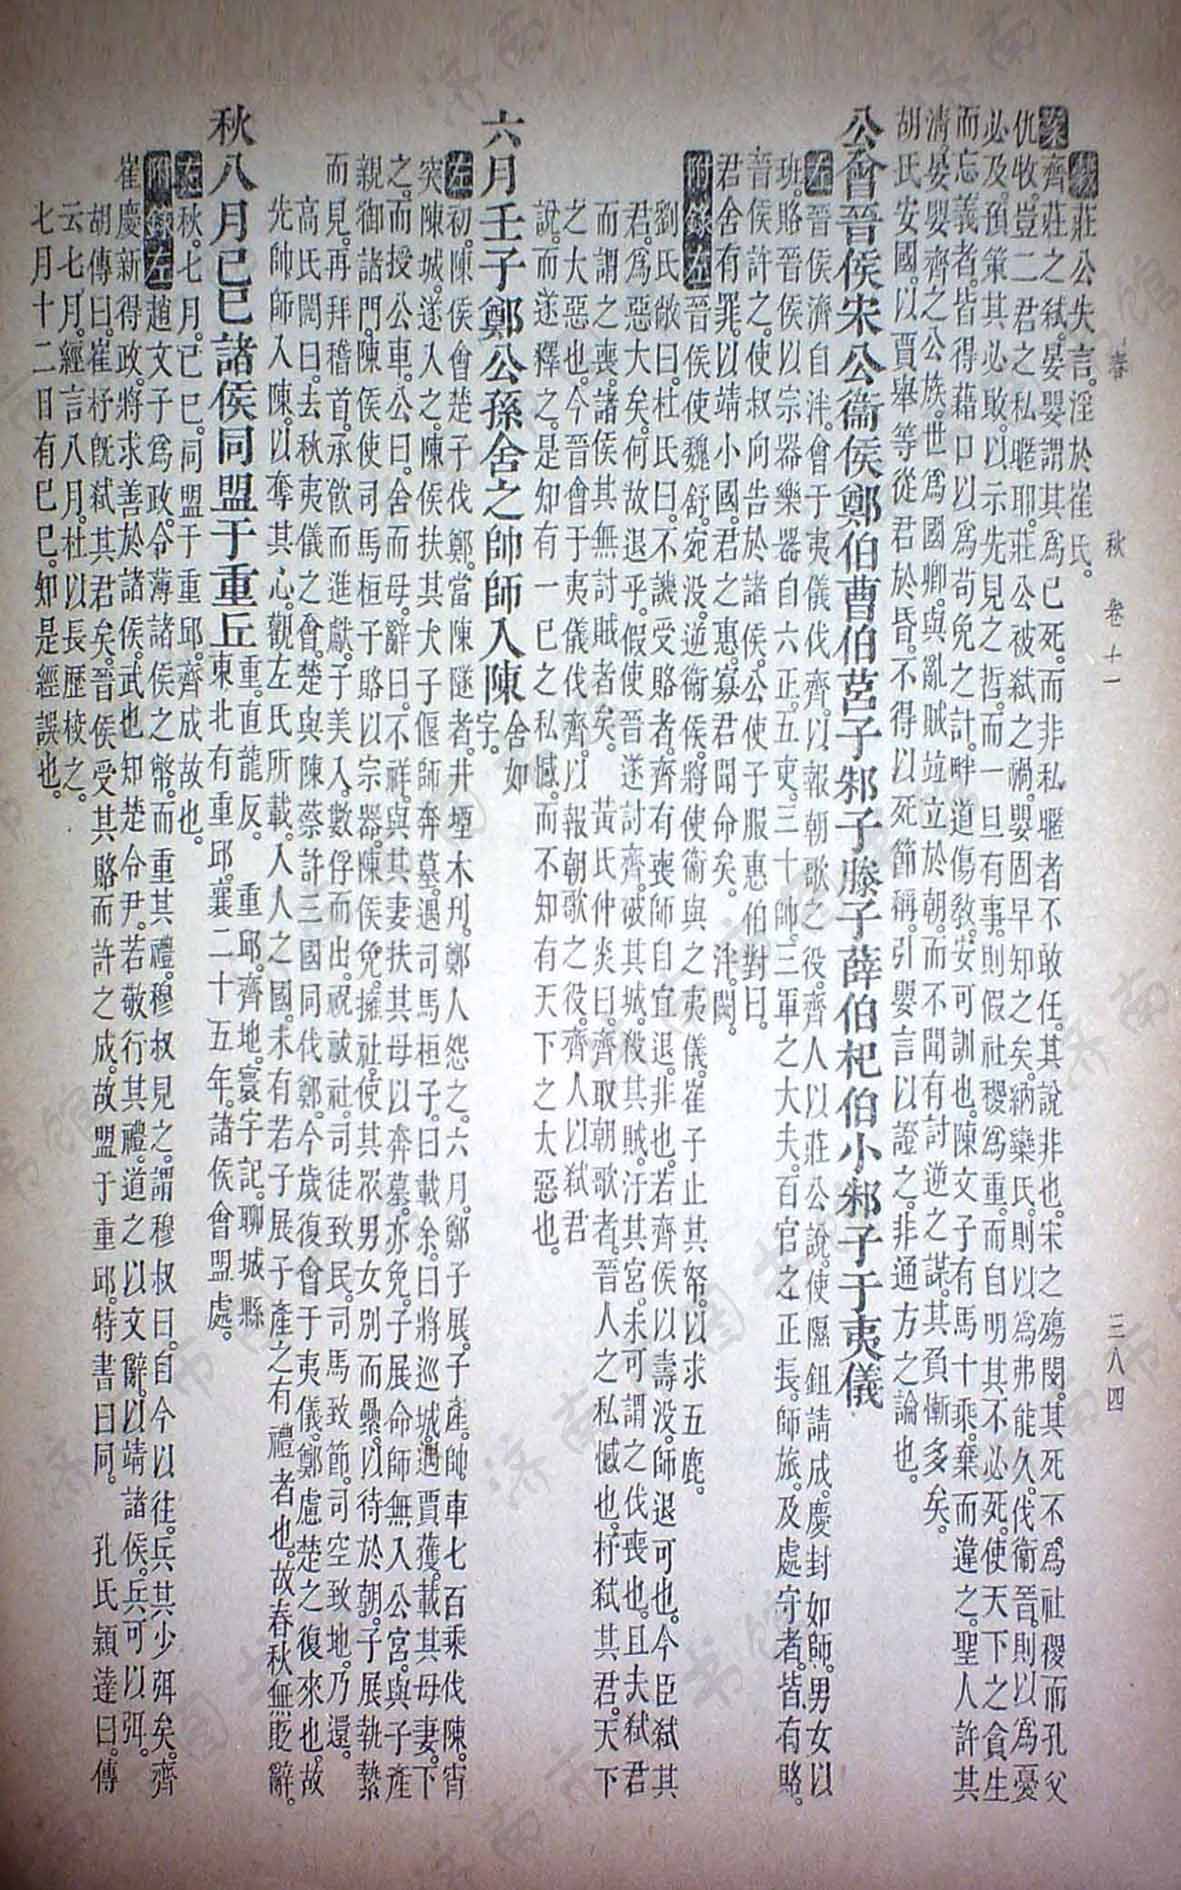 春　秋　卷十一　三八四
莊公失言淫於崔氏
案齊莊之弒晏嬰謂其爲己死而非私暱者不敢任其說非也宋之殤閔其死不爲社稷而孔父
仇牧豈二君之私暱耶莊公被弒之禍嬰固早知之矣納欒氏則以爲弗能久伐衞晉則以爲憂
必及預策其必敗以示先見之哲而一旦有事則假社稷爲重而自明其不必死使天下之貪生
而忘義者皆得藉口以爲苟免之計畔道傷敎安可訓也陳文子有馬十乘棄而違之聖人許其
清晏嬰齊之公族世爲國卿與亂賊竝立於朝而不聞有討逆之謀其負慚多矣
胡氏安國以賈舉等從君於昏不得以死節稱引嬰言以證之非通方之論也
公會晉侯宋公衞侯鄭伯曹伯莒子邾子滕子薛伯杞伯小邾子于夷儀
左晉侯濟自泮會于夷儀伐齊以報朝歌之役齊人以莊公說使隰鉏請成慶封如師男女以
班賂晉侯以宗器樂器自六正五吏三十帥三軍之大夫百官之正長師旅及處守者皆有賂
晉侯許之使叔向告於諸侯公使子服惠伯對曰
君舍有罪以靖小國君之惠寡君聞命矣　泮闕
附錄左晉侯使魏舒宛没逆衞侯將使衞與之夷儀崔子止其帑以求五鹿
劉氏敞曰杜氏曰不譏受賂者齊有喪師自宜退非也若齊侯以壽没師退可也今臣弒其
君爲惡大矣何故退乎假使晉遂討齊破其城殺其賊汙其宮未可謂之伐喪也且夫弒君
而謂之喪諸侯其無討賊者矣　黃氏仲炎曰齊取朝歌者晉人之私憾也杼弒其君天下
之大惡也今晉會于夷儀伐齊以報朝歌之役齊人以弒君
說而遂釋之是知有一己之私憾而不知有天下之大惡也
六月壬子鄭公孫舍之帥師入陳舍如字
左初陳侯會楚子伐鄭當陳隧者井堙木刊鄭人怨之六月鄭子展子產帥車七百乘伐陳宵
突陳城遂入之陳侯扶其大子偃師奔墓遇司馬桓子曰載余曰將巡城遇賈獲載其母妻下
之而授公車公曰舍而母辭曰不祥與其妻扶其母以奔墓亦免子展命師無入公宮與子產
親御諸門陳侯使司馬桓子賂以宗器陳侯免擁社使其眾男女別而纍以待於朝子展執縶
而見再拜稽首承飲而進獻子美入數俘而出祝祓社司徒致民司馬致節司空致地乃還
高氏閌曰去秋夷儀之會楚與陳蔡許三國同伐鄭今歲復會于夷儀鄭慮楚之復來也故
先帥師入陳以奪其心觀左氏所載入人之國未有若子展子產之有禮者也故春秋無貶辭
秋八月己巳諸侯同盟于重丘重直龍反　重邱齊地寰宇記聊城縣
東北有重邱襄二十五年諸侯會盟處
左秋七月己巳同盟于重邱齊成故也
附錄左趙文子爲政令薄諸侯之幣而重其禮穆叔見之謂穆叔曰自今以往兵其少弭矣齊
崔慶新得政將求善於諸侯武也知楚令尹若敬行其禮道之以文辭以靖諸侯兵可以弭
胡傳曰崔杼旣弒其君矣晉侯受其賂而許之成故盟于重邱特書曰同　孔氏穎達曰傳
云七月經言八月杜以長歷校之
七月十二日有己巳知是經誤也